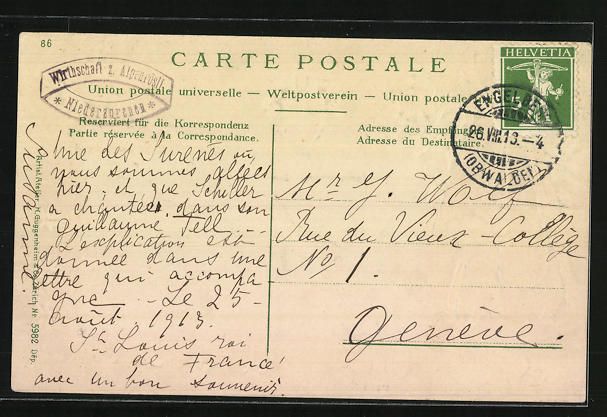 66
CARTE POSTALE
Wirthschaft z. Alpenrösli
* Niedersurenen *
Union postale universelle — Weltpostverein — Union postale
HELVETIA
ENGELBERG
26.VIII.13.—4
(OBWALDEN)
Reserviert für die Korrespondenz
Partie réservée à la Correspondance.
Adresse des Empfängers
Adresse du Destinataire.
Vue des Surenes où
nous sommes allées
hier, et que Schiller
a chantées dans son
Guillaume Tell.
L'explication est
donnée dans une
lettre qui accompa
gne. — Le 25
août 1913.
St Louis roi
de France
avec un bon souvenir.
Suzanne.
Mr J. Wolf
Rue du Vieux-Collège
No 1.
Genève.
Artist. Atelier H. Guggenheim & Co., Zürich No 5982 Dép.